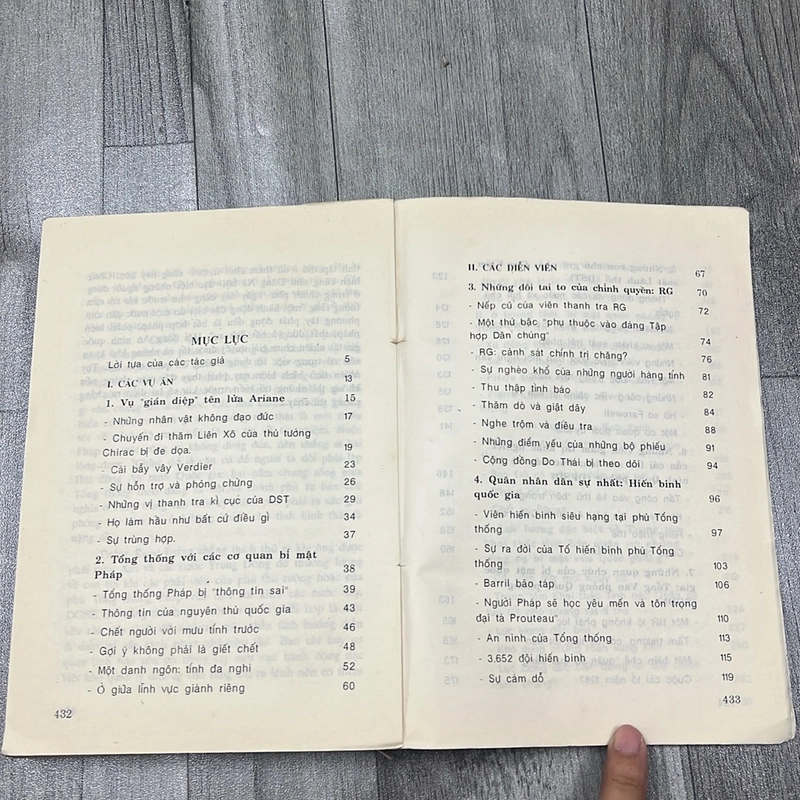 MỤC LỤC
Lời tựa của các tác giả 5
I. CÁC VỤ ÁN 13
1. Vụ "gián điệp" tên lửa Ariane 15
- Những nhân vật không đạo đức 17
- Chuyến đi thăm Liên Xô của thủ tướng
Chirac bị đe dọa. 19
- Cái bẫy vây Verdier 23
- Sự hỗn trợ và phóng chừng 26
- Những vị thanh tra kì cục của DST 29
- Họ làm hầu như bất cứ điều gì 34
- Sự trùng hợp. 37
2. Tổng thống với các cơ quan bí mật
Pháp 38
- Tổng thống Pháp bị "thông tin sai" 39
- Thông tin của nguyên thủ quốc gia 43
- Chết người với mưu tính trước 46
- Gợi ý không phải là giết chết 48
- Một danh ngôn: tính đa nghi 52
- Ở giữa lĩnh vực giành riêng 60
432
II. CÁC DIỄN VIÊN 67
3. Những dôi tai to của chính quyền: RG 70
- Nếp cũ của viên thanh tra RG 72
- Một thứ bậc "phụ thuộc vào đảng Tập
hợp Dân chúng" 74
- RG: cảnh sát chính trị chăng? 76
- Sự nghèo khổ của những người hàng tỉnh 81
- Thu thập tình báo 82
- Thăm dò và giật dây 84
- Nghe trộm và điều tra 88
- Những điểm yếu của những bộ phiếu 91
- Cộng đồng Do Thái bị theo dõi 94
4. Quân nhân dân sự nhất: Hiến binh
quốc gia 96
- Viên hiến binh siêu hạng tại phủ Tổng
thống 97
- Sự ra đời của Tổ hiến binh phủ Tổng
thống 103
- Barril bão táp 106
- Người Pháp sẽ học yêu mến và tôn trọng
đại tá Prouteau" 110
- An ninh của Tổng thống 113
- 3.652 đội hiến binh 115
- Sự cám dỗ 119
433